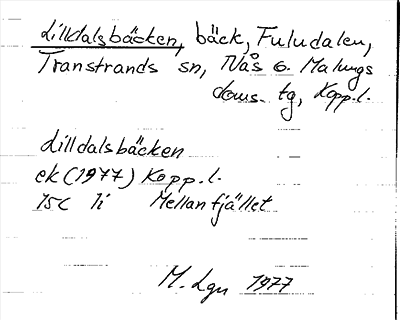 Lilldalsbäcken, bäck, Fuludalen,
Transtrands sn, Nås o. Malungs
doms. tg, Kopp.l.
Lilldalsbäcken
ek (1977) Kopp.l.
15C 1i Mellanfjället
M. Lgn 1977